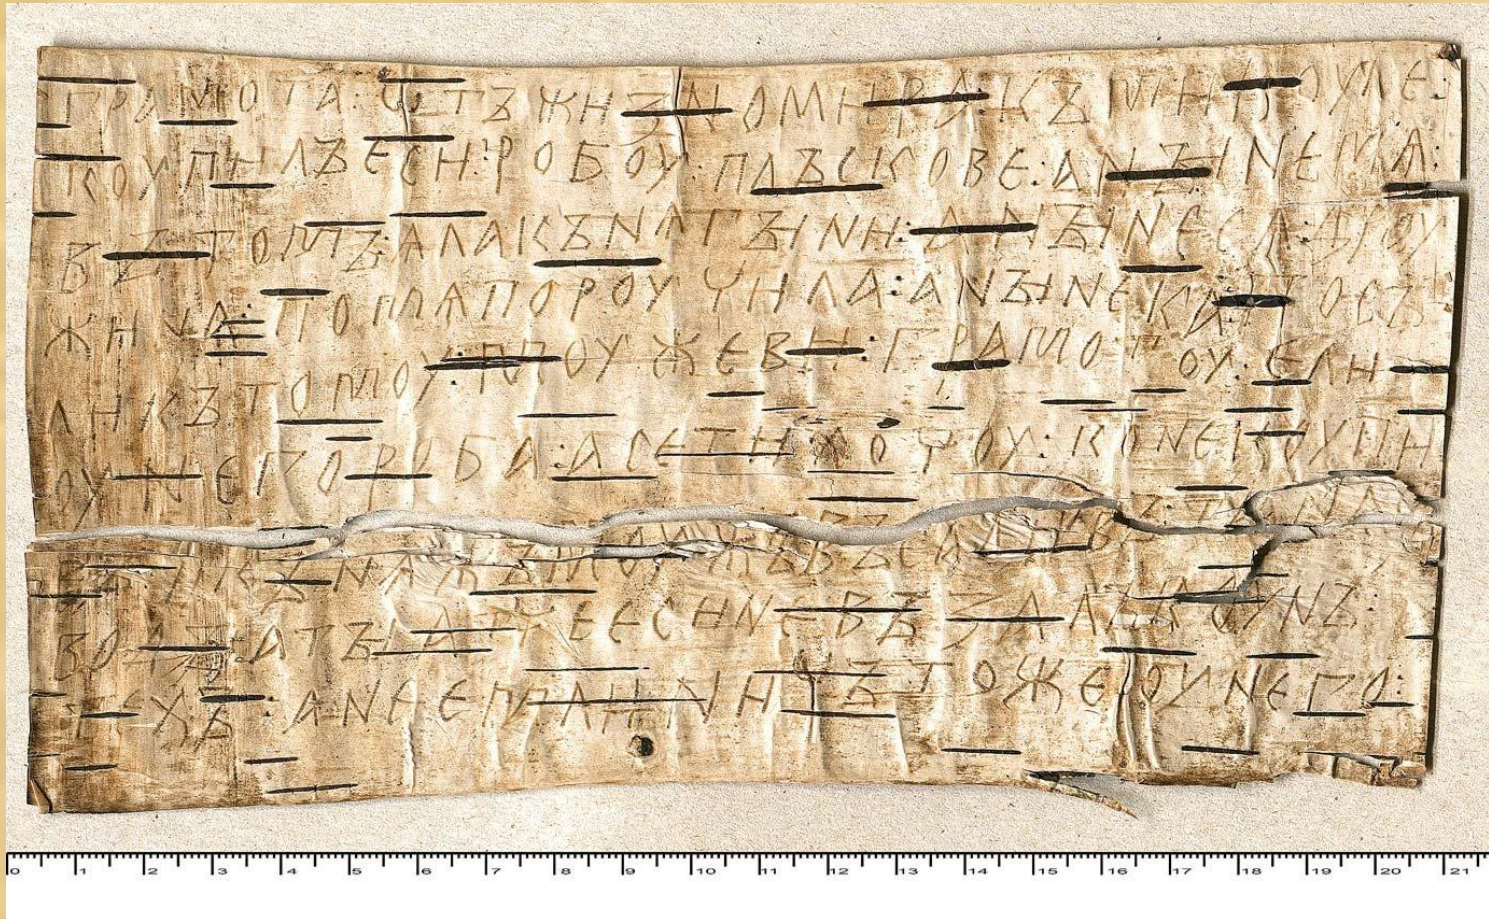 ГРАМОТА:ѠТЪЖИЗНОМИРА:КЪМИКОУЛЕ:
КОУПИЛЪЕСИ:РОБОУ:ПЛЪСКОВЕ:АНЪІНЕМѦ:
ВЪТОМЪ:ѦЛАКЪНѦГЪІНИ:АНЪІНЕСѦ:ДРОУ
ЖИНА:ПОМѦПОРОУЧИЛА:АНЪІНЕКА:ПОСЪ
ЛИКЪТОМОУ:МОУЖЕВИ:ГРАМОТОУ:ЕЛИ
ОУНЕГОРОБА:АСЕТИХОЧОУ:КОНЕКОУПИ
ВЪ:ИКЪНѦЖЪМОУЖЪВЪСАДИВЪ:ТАНАСЪ
ВОДЪІ:АТЪІАТЧЕЕСИНЕВЪЗАЛЪКОУНЪ:
ТЕХЪ:АНЕЕМЛИ:НИЧЪТОЖЕОУНЕГО:
0 1 2 3 4 5 6 7 8 9 10 11 12 13 14 15 16 17 18 19 20 21